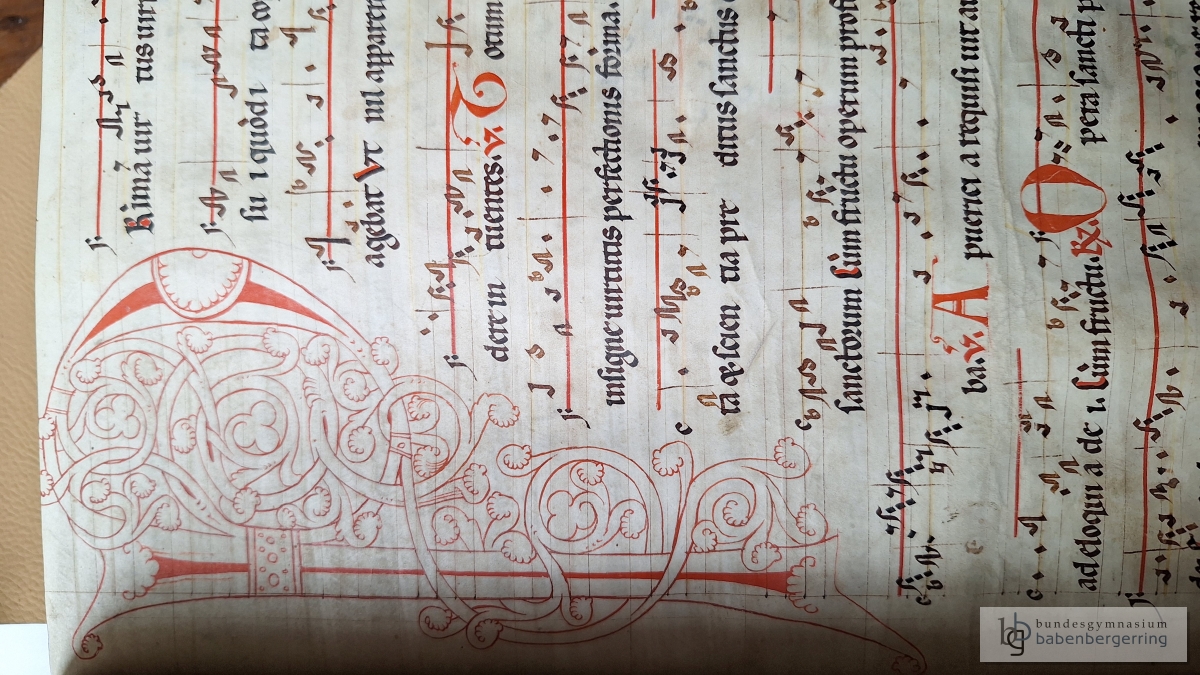 Rimã uir
su i quodi ta co
agebat Vt nil apparen
derem tuentes. V. Totum
insigne uirtutis perfectionis forma.
tã & scien tia pre ditus sanctus
sanctorum Cum fructu operum profi
ba. V. A pueri ci a requisi uit au
ad eloqui ã de i. Cum fructu. R. Opera sancti p
bundesgymnasium
babenbergerring
bg